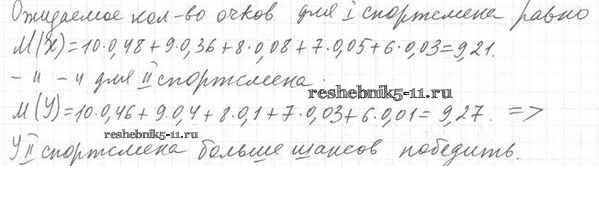 Ожидаемое кол-во очков для I спортсмена равно
M(X)=10·0,48+9·0,36+8·0,08+7·0,05+6·0,03=9,21.
– " – " для II спортсмена:
reshebnik5-11.ru
M(Y)=10·0,46+9·0,4+8·0,1+7·0,03+6·0,01=9,27. =>
reshebnik5-11.ru
У II спортсмена больше шансов победить.